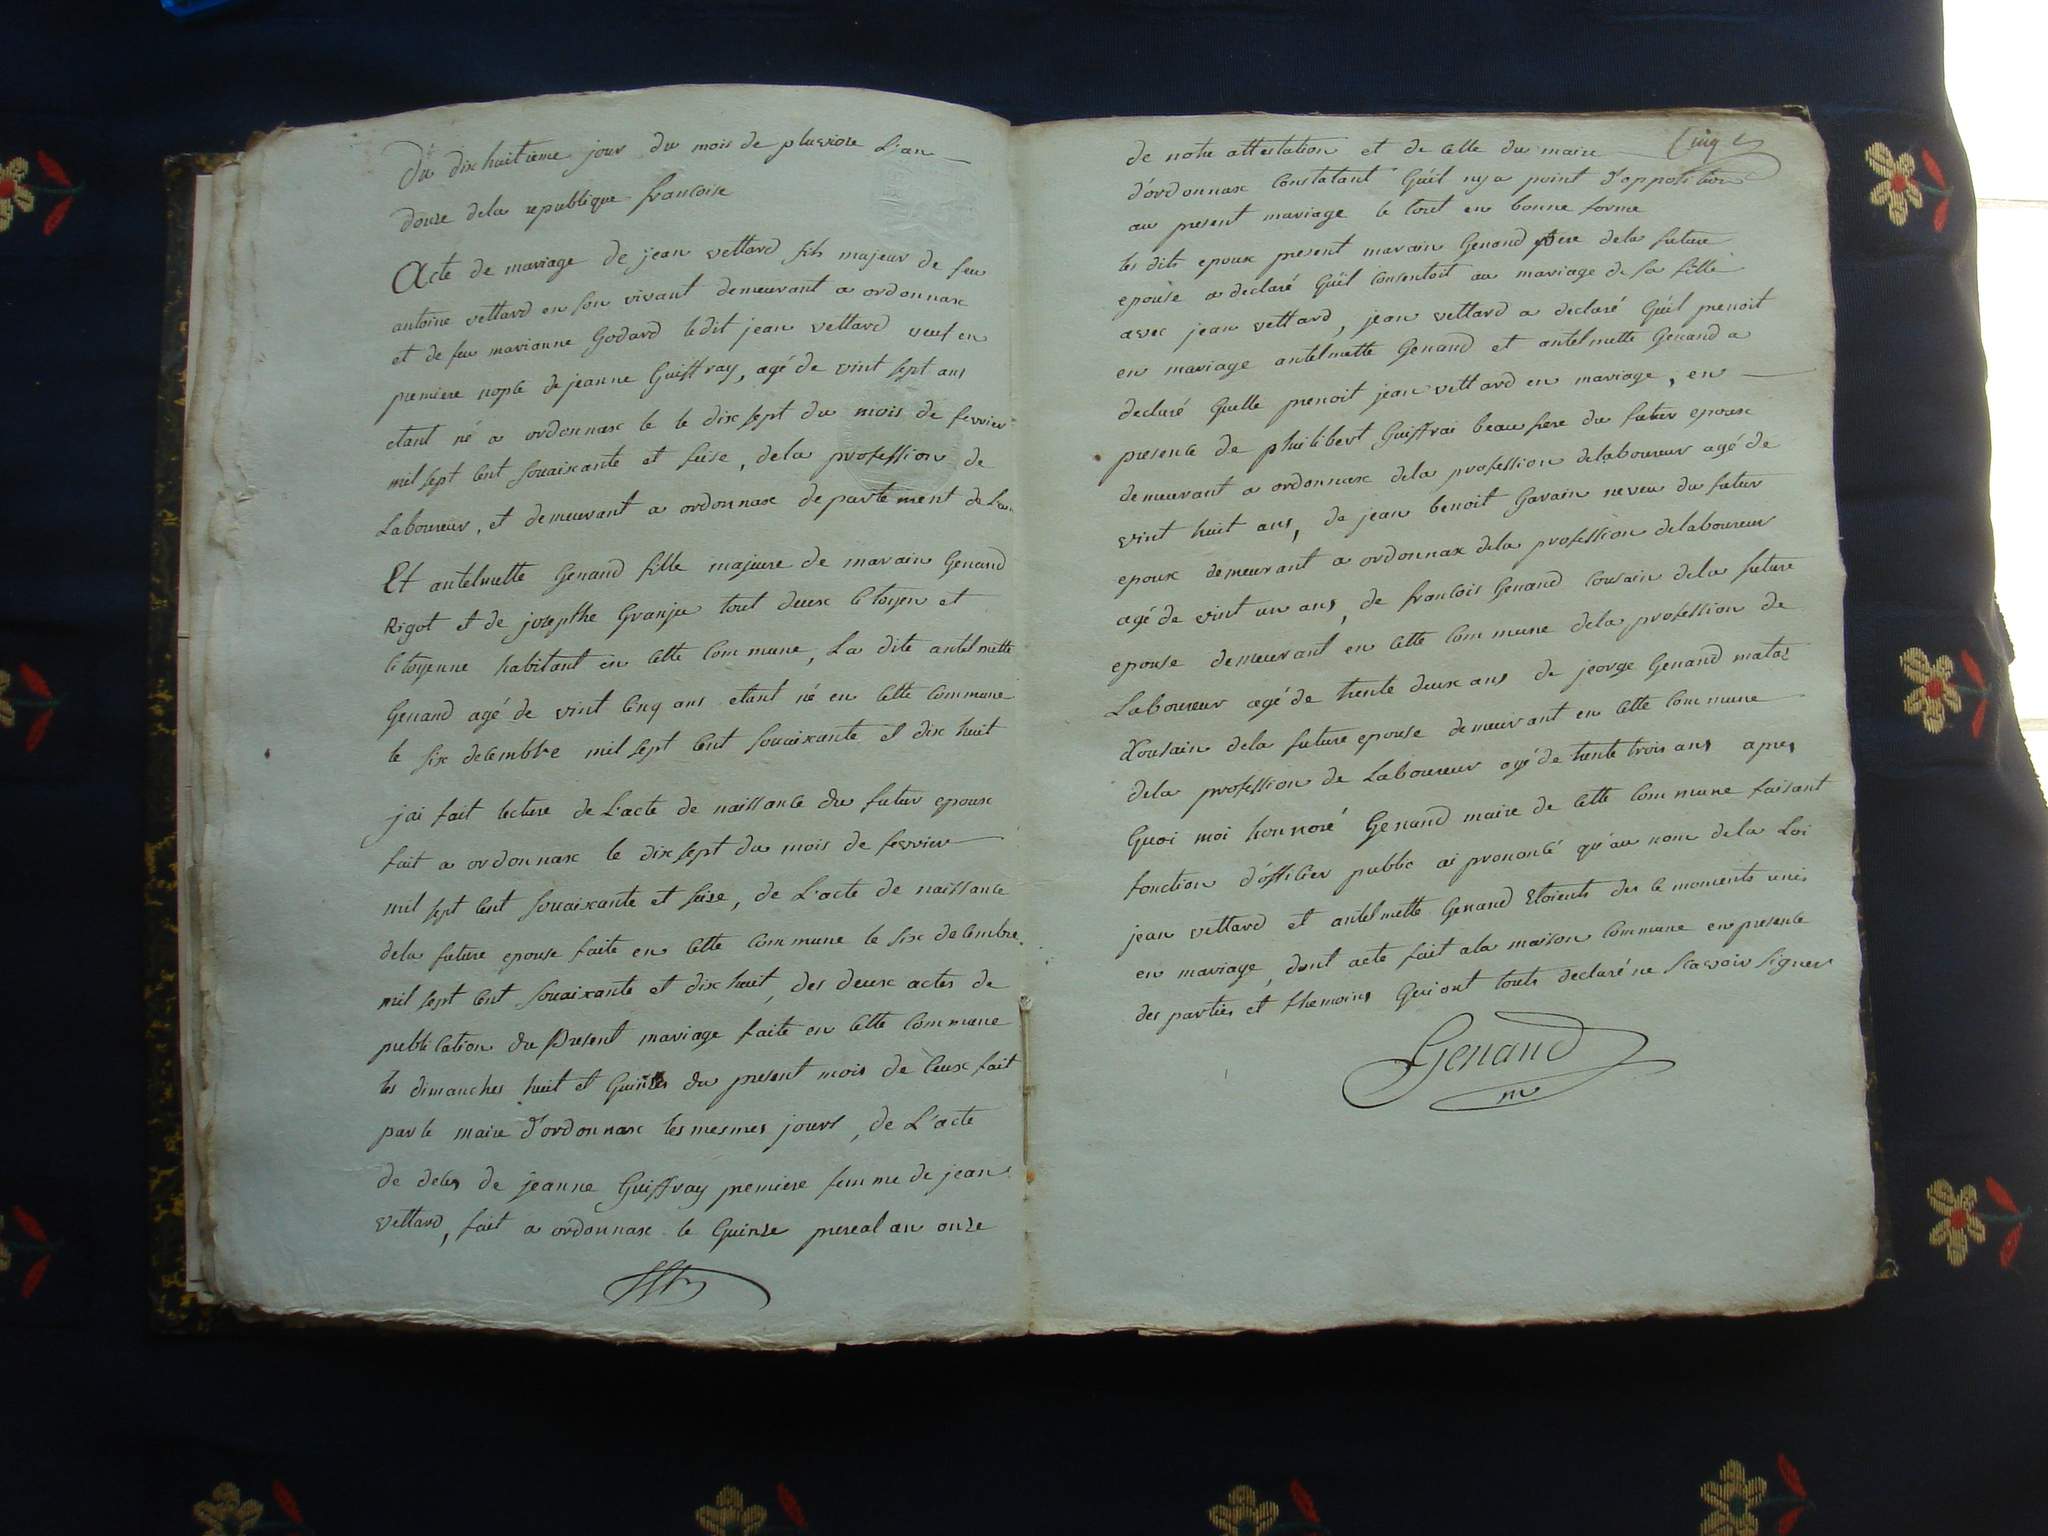 Du dix huitieme jour du mois de pluviose L'an
douze dela republique francoise
Acte de mariage de jean vettard fils majeur de feu
antoine vettard en son vivant demeurant a ordonnax
et de feu marianne Godard ledit jean vettard veuf en
premiere nopce de jeanne Guiffray, agé de vint sept ans
etant né a ordonnax le le dix sept du mois de fevrier
mil sept cent souaixante et seise, dela profession de
Laboureur, et demeurant a ordonnax departement de L'ain
Et antelmette Genand fille majeure de marain Genand
Rigot et de josepthe Granju tout deux citoyen et
citoyenne habitant en cette commune, La dite antelmette
Genand agé de vint cinq ans etant né en cette commune
le six decembre mil sept cent souaixante et dix huit
j'ai fait lecture de L'acte de naissance du futur epoux
fait a ordonnax le dix sept du mois de fevrier
mil sept cent souaixante et seise, de L'acte de naissance
dela future epouse faite en cette commune le six decembre
mil sept cent souaixante et dix huit, des deux actes de
publication du Present mariage faite en cette commune
les dimanches huit et Quinse du present mois de ceux fait
par le maire d'ordonnax les mesmes jours, de L'acte
de deces de jeanne Guiffray premiere femme de jean
Vettard, fait a ordonnax le Quinze prereal an onze
Cinq
de notre attestation et de celle du maire
d'ordonnax constatant Qu'il ny a point d'opposition
au present mariage le tout en bonne forme
les dits epoux present marain Genand pere dela future
epouse a declaré Qu'il consentoit au mariage de sa fille
avec jean vettard, jean vettard a declaré Qu'il prenoit
en mariage antelmette Genand et antelmette Genand a
declaré Quelle prenoit jean vettard en mariage, en
presence de philibert Guiffrai beau frere du futur epoux
demeurant a ordonnax dela profession delaboureur agé de
vint huit ans, de jean benoit Gavain neveu du futur
epoux demeurant a ordonnax dela profession delaboureur
agé de vint un ans, de francois Genand cousain dela future
epouse demeurant en cette commune dela profession de
Laboureur agé de trente deux ans de jeorge Genand mataz
Cousain dela future epouse demeurant en cette commune
dela profession de Laboureur agé de trente trois ans apres
Quoi moi honnoré Genand maire de cette commune faisant
fonction d'officier public ai prononcé qu'au nom dela Loi
jean vettard et antelmette Genand Etoients des ce moments unis
en mariage, dont acte fait ala maison commune en presence
des parties et themoins Qui ont touts declaré ne scavoir signer
Genand